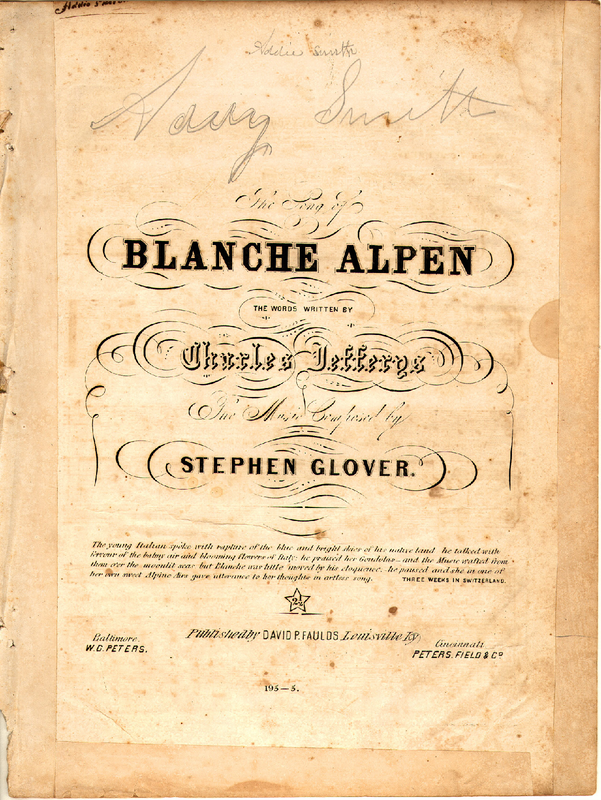 Addie Smith
Addie Smith
Addy Smith
The Song of
BLANCHE ALPEN
THE WORDS WRITTEN BY
Charles Jefferys
The Music Composed by
STEPHEN GLOVER.
The young Italian spoke with rapture of the blue and bright skies of his native land he talked with
fervour of the balmy air and blooming flowers of Italy: he praised her Gondolas — and the Music wafted from
them o'er the moonlit seas but Blanche was little moved by his eloquence. he paused and she in one of
her own sweet Alpine Airs gave utterance to her thoughts in artless song. THREE WEEKS IN SWITZERLAND.
2½
Baltimore.
W. C. PETERS.
Published by DAVID P. FAULDS, Louisville Ky
Cincinnati
PETERS, FIELD & Co
195—5.